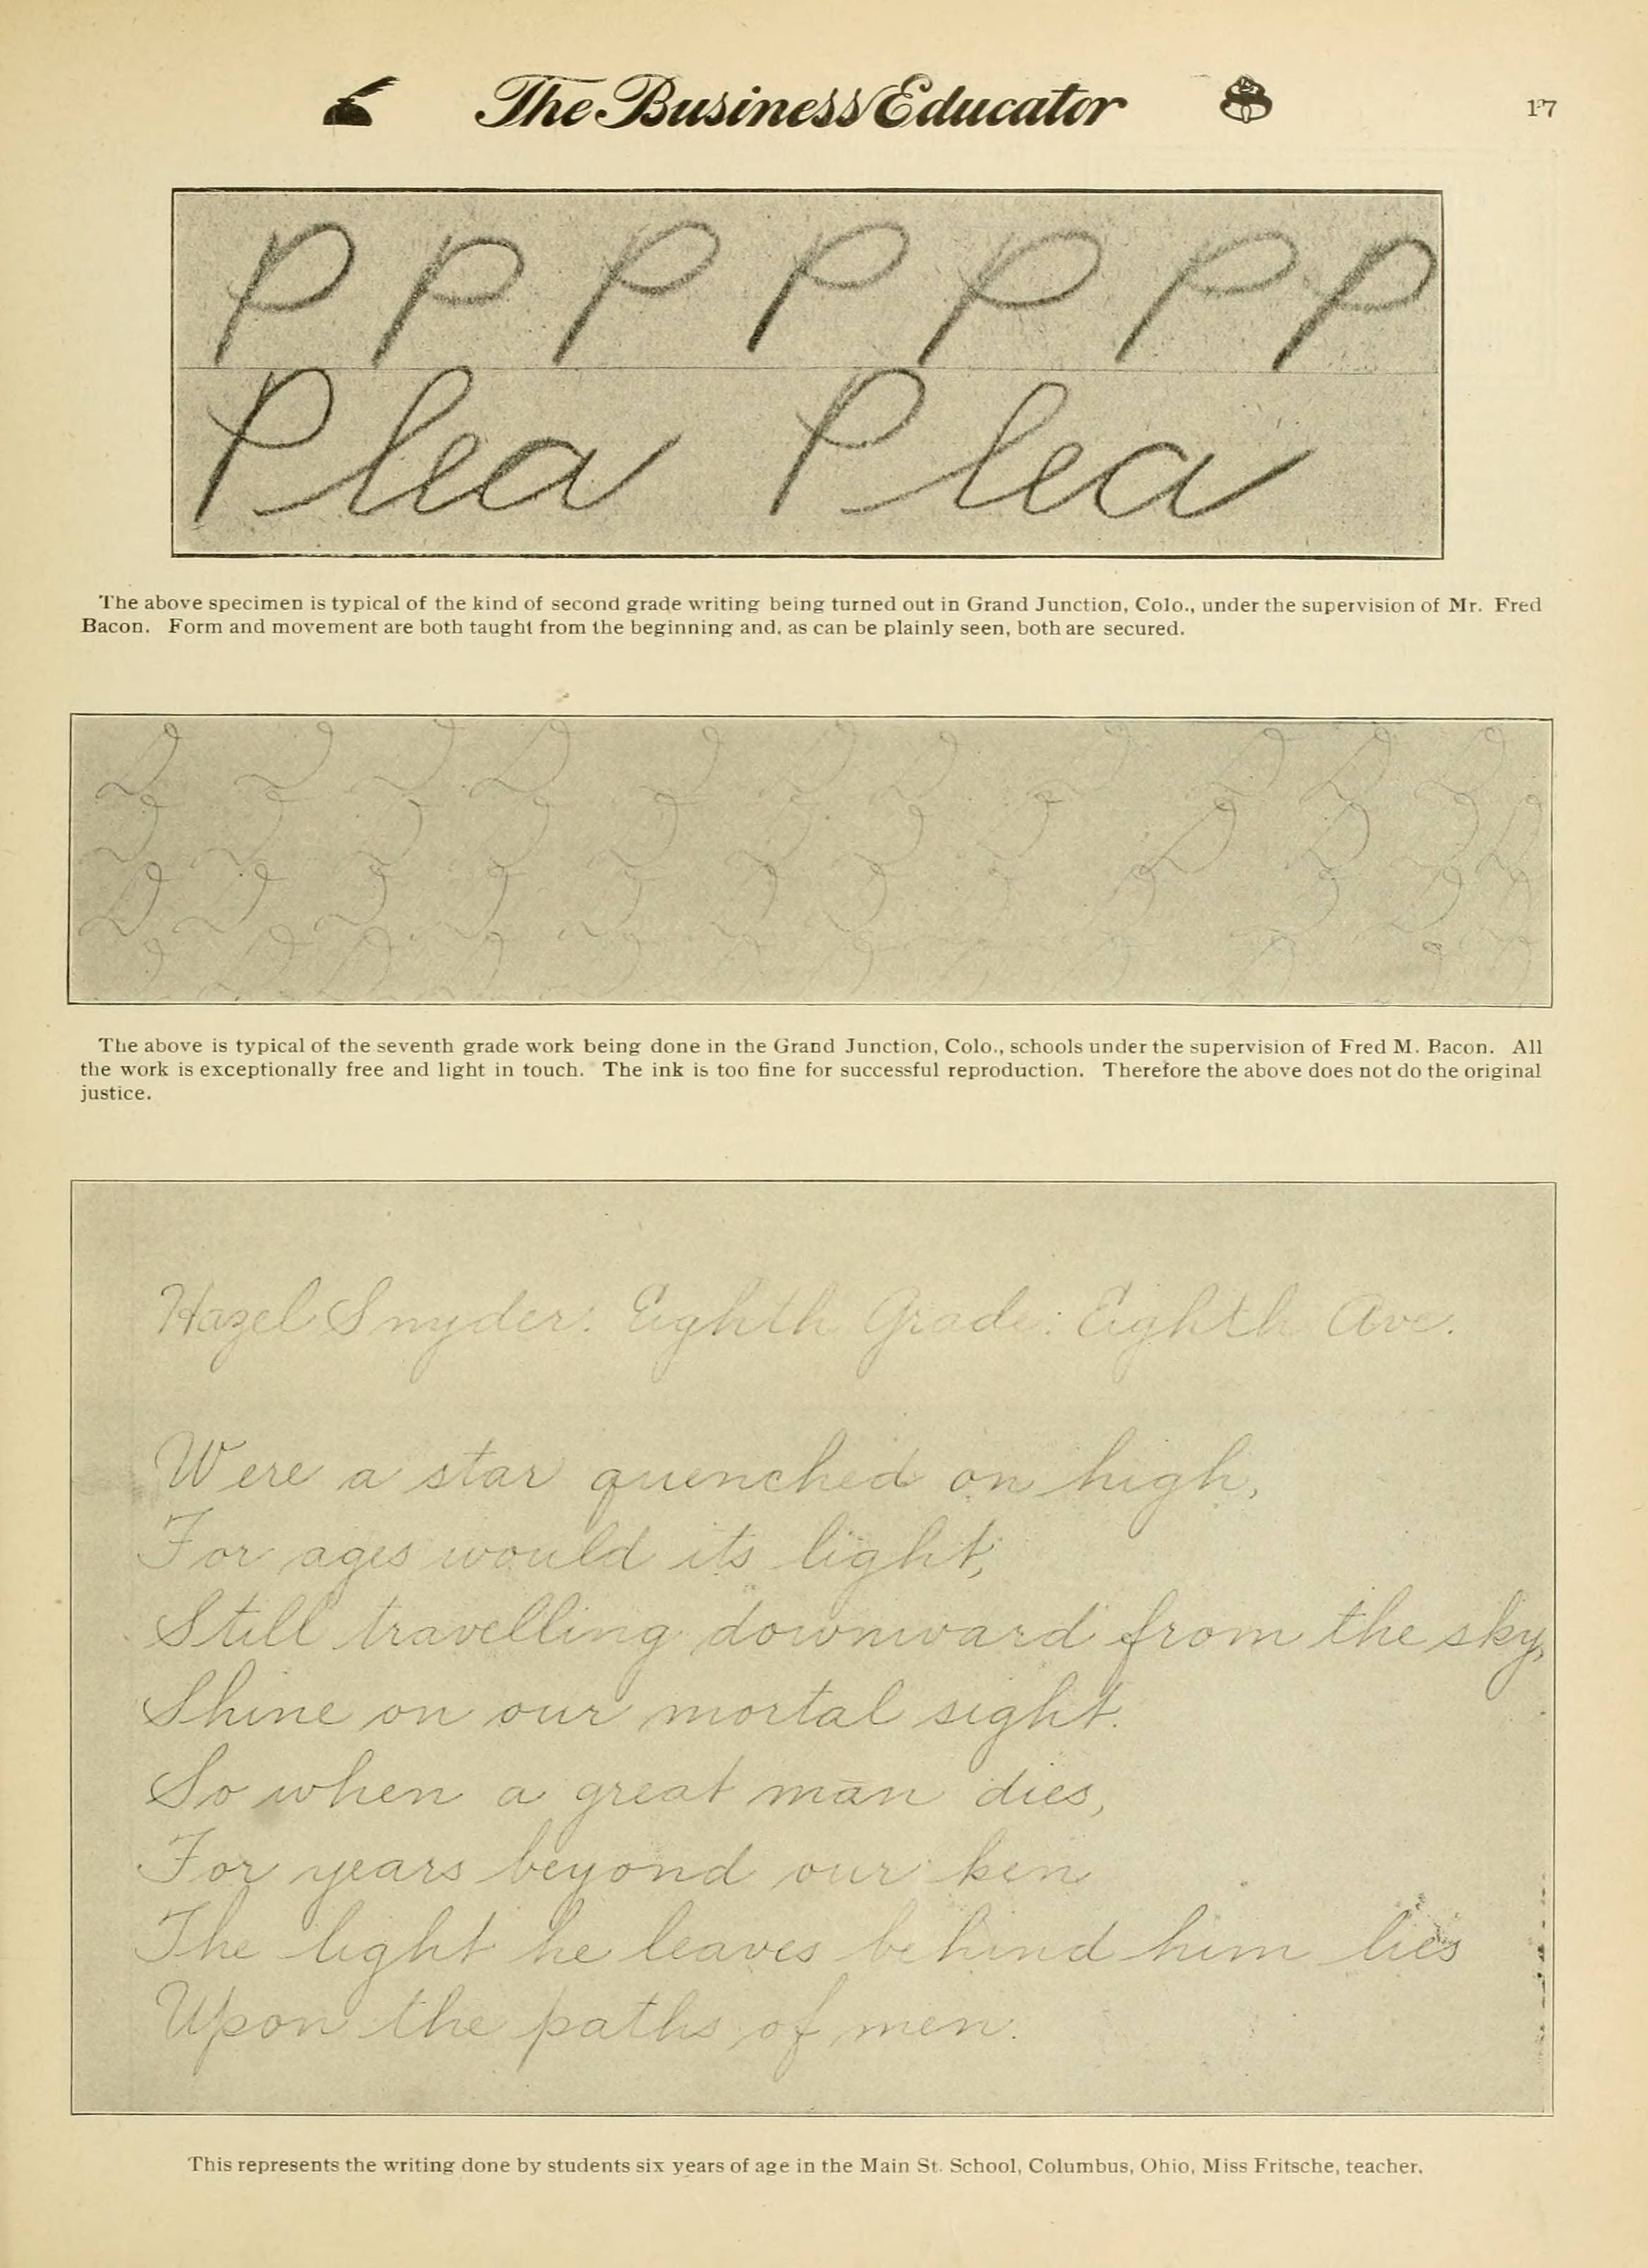 The Business Educator
17
P P P P P P P
Plea Plea
The above specimen is typical of the kind of second grade writing being turned out in Grand Junction, Colo., under the supervision of Mr. Fred
Bacon. Form and movement are both taught from the beginning and, as can be plainly seen, both are secured.
The above is typical of the seventh grade work being done in the Grand Junction, Colo., schools under the supervision of Fred M. Bacon. All
the work is exceptionally free and light in touch. The ink is too fine for successful reproduction. Therefore the above does not do the original
justice.
Hazel Snyder. Eighth Grade. Eighth Ave.
Were a star quenched on high,
For ages would its light,
Still travelling downward from the sky,
Shine on our mortal sight.
So when a great man dies,
For years beyond our ken
The light he leaves behind him lies
Upon the paths of men.
This represents the writing done by students six years of age in the Main St. School, Columbus, Ohio, Miss Fritsche, teacher.